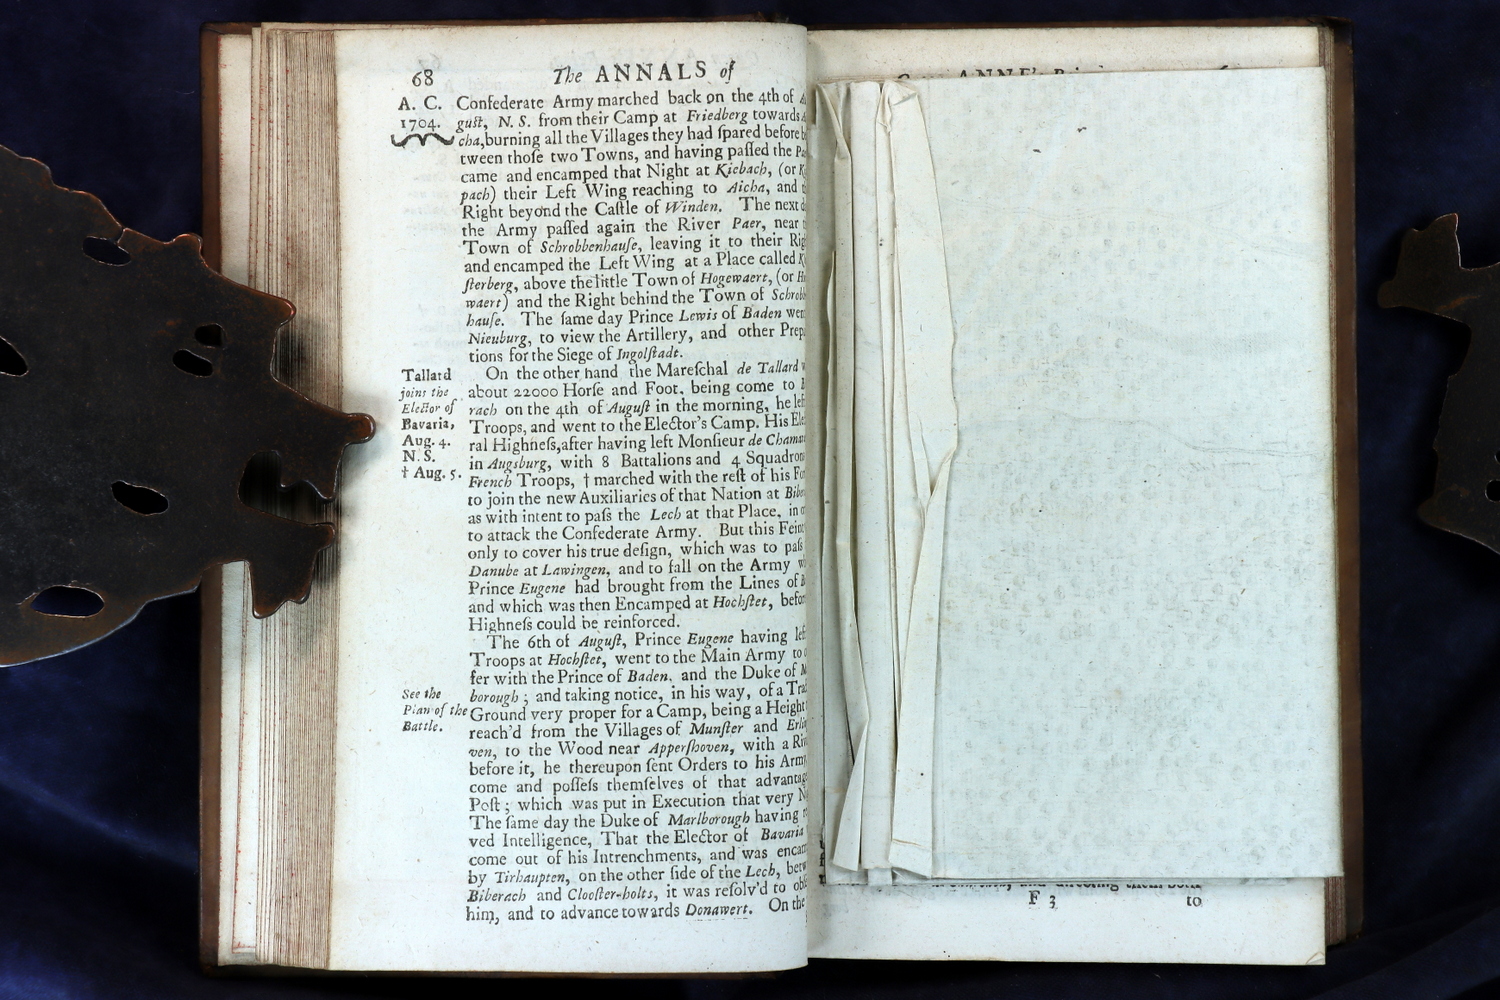 68 The ANNALS of
A. C.
1704.
Confederate Army marched back on the 4th of
guſt, N. S. from their Camp at Friedberg towards
cha, burning all the Villages they had ſpared before
tween thoſe two Towns, and having paſſed the
came and encamped that Night at Kicbach, (or
pach) their Left Wing reaching to Aicha, and
Right beyond the Caſtle of Winden. The next
the Army paſſed again the River Paer, near
Town of Schrobbenhauſe, leaving it to their
and encamped the Left Wing at a Place called
ſterberg, above the little Town of Hogewaert, (or
waert) and the Right behind the Town of
hauſe. The ſame day Prince Lewis of Baden
Nieuburg, to view the Artillery, and other
tions for the Siege of Ingolſtadt.
Tallard
joins the
Elector of
Bavaria,
Aug. 4.
N. S.
† Aug. 5.
On the other hand the Mareſchal de Tallard
about 22000 Horſe and Foot, being come to
rach on the 4th of Auguſt in the morning, he
Troops, and went to the Elector's Camp. His
ral Highneſs, after having left Monſieur de
in Augsburg, with 8 Battalions and 4
French Troops, † marched with the reſt of his
to join the new Auxiliaries of that Nation at
as with intent to paſs the Lech at that Place, in
to attack the Confederate Army. But this
only to cover his true deſign, which was to
Danube at Lawingen, and to fall on the Army
Prince Eugene had brought from the Lines of
and which was then Encamped at Hochſtet,
Highneſs could be reinforced.
The 6th of Auguſt, Prince Eugene having
Troops at Hochſtet, went to the Main Army to
fer with the Prince of Baden, and the Duke of
See the
Plan of the
Battle.
borough; and taking notice, in his way, of a
Ground very proper for a Camp, being a Height
reach'd from the Villages of Munſter and
ven, to the Wood near Apperſhoven, with a
before it, he thereupon ſent Orders to his
come and poſſeſs themſelves of that
Poſt; which was put in Execution that very
The ſame day the Duke of Marlborough having
ved Intelligence, That the Elector of Bavaria
come out of his Intrenchments, and was
by Tirhaupten, on the other ſide of the Lech,
Biberach and Clooſter-holts, it was reſolv'd to
him, and to advance towards Donawert. On the
F 3 to